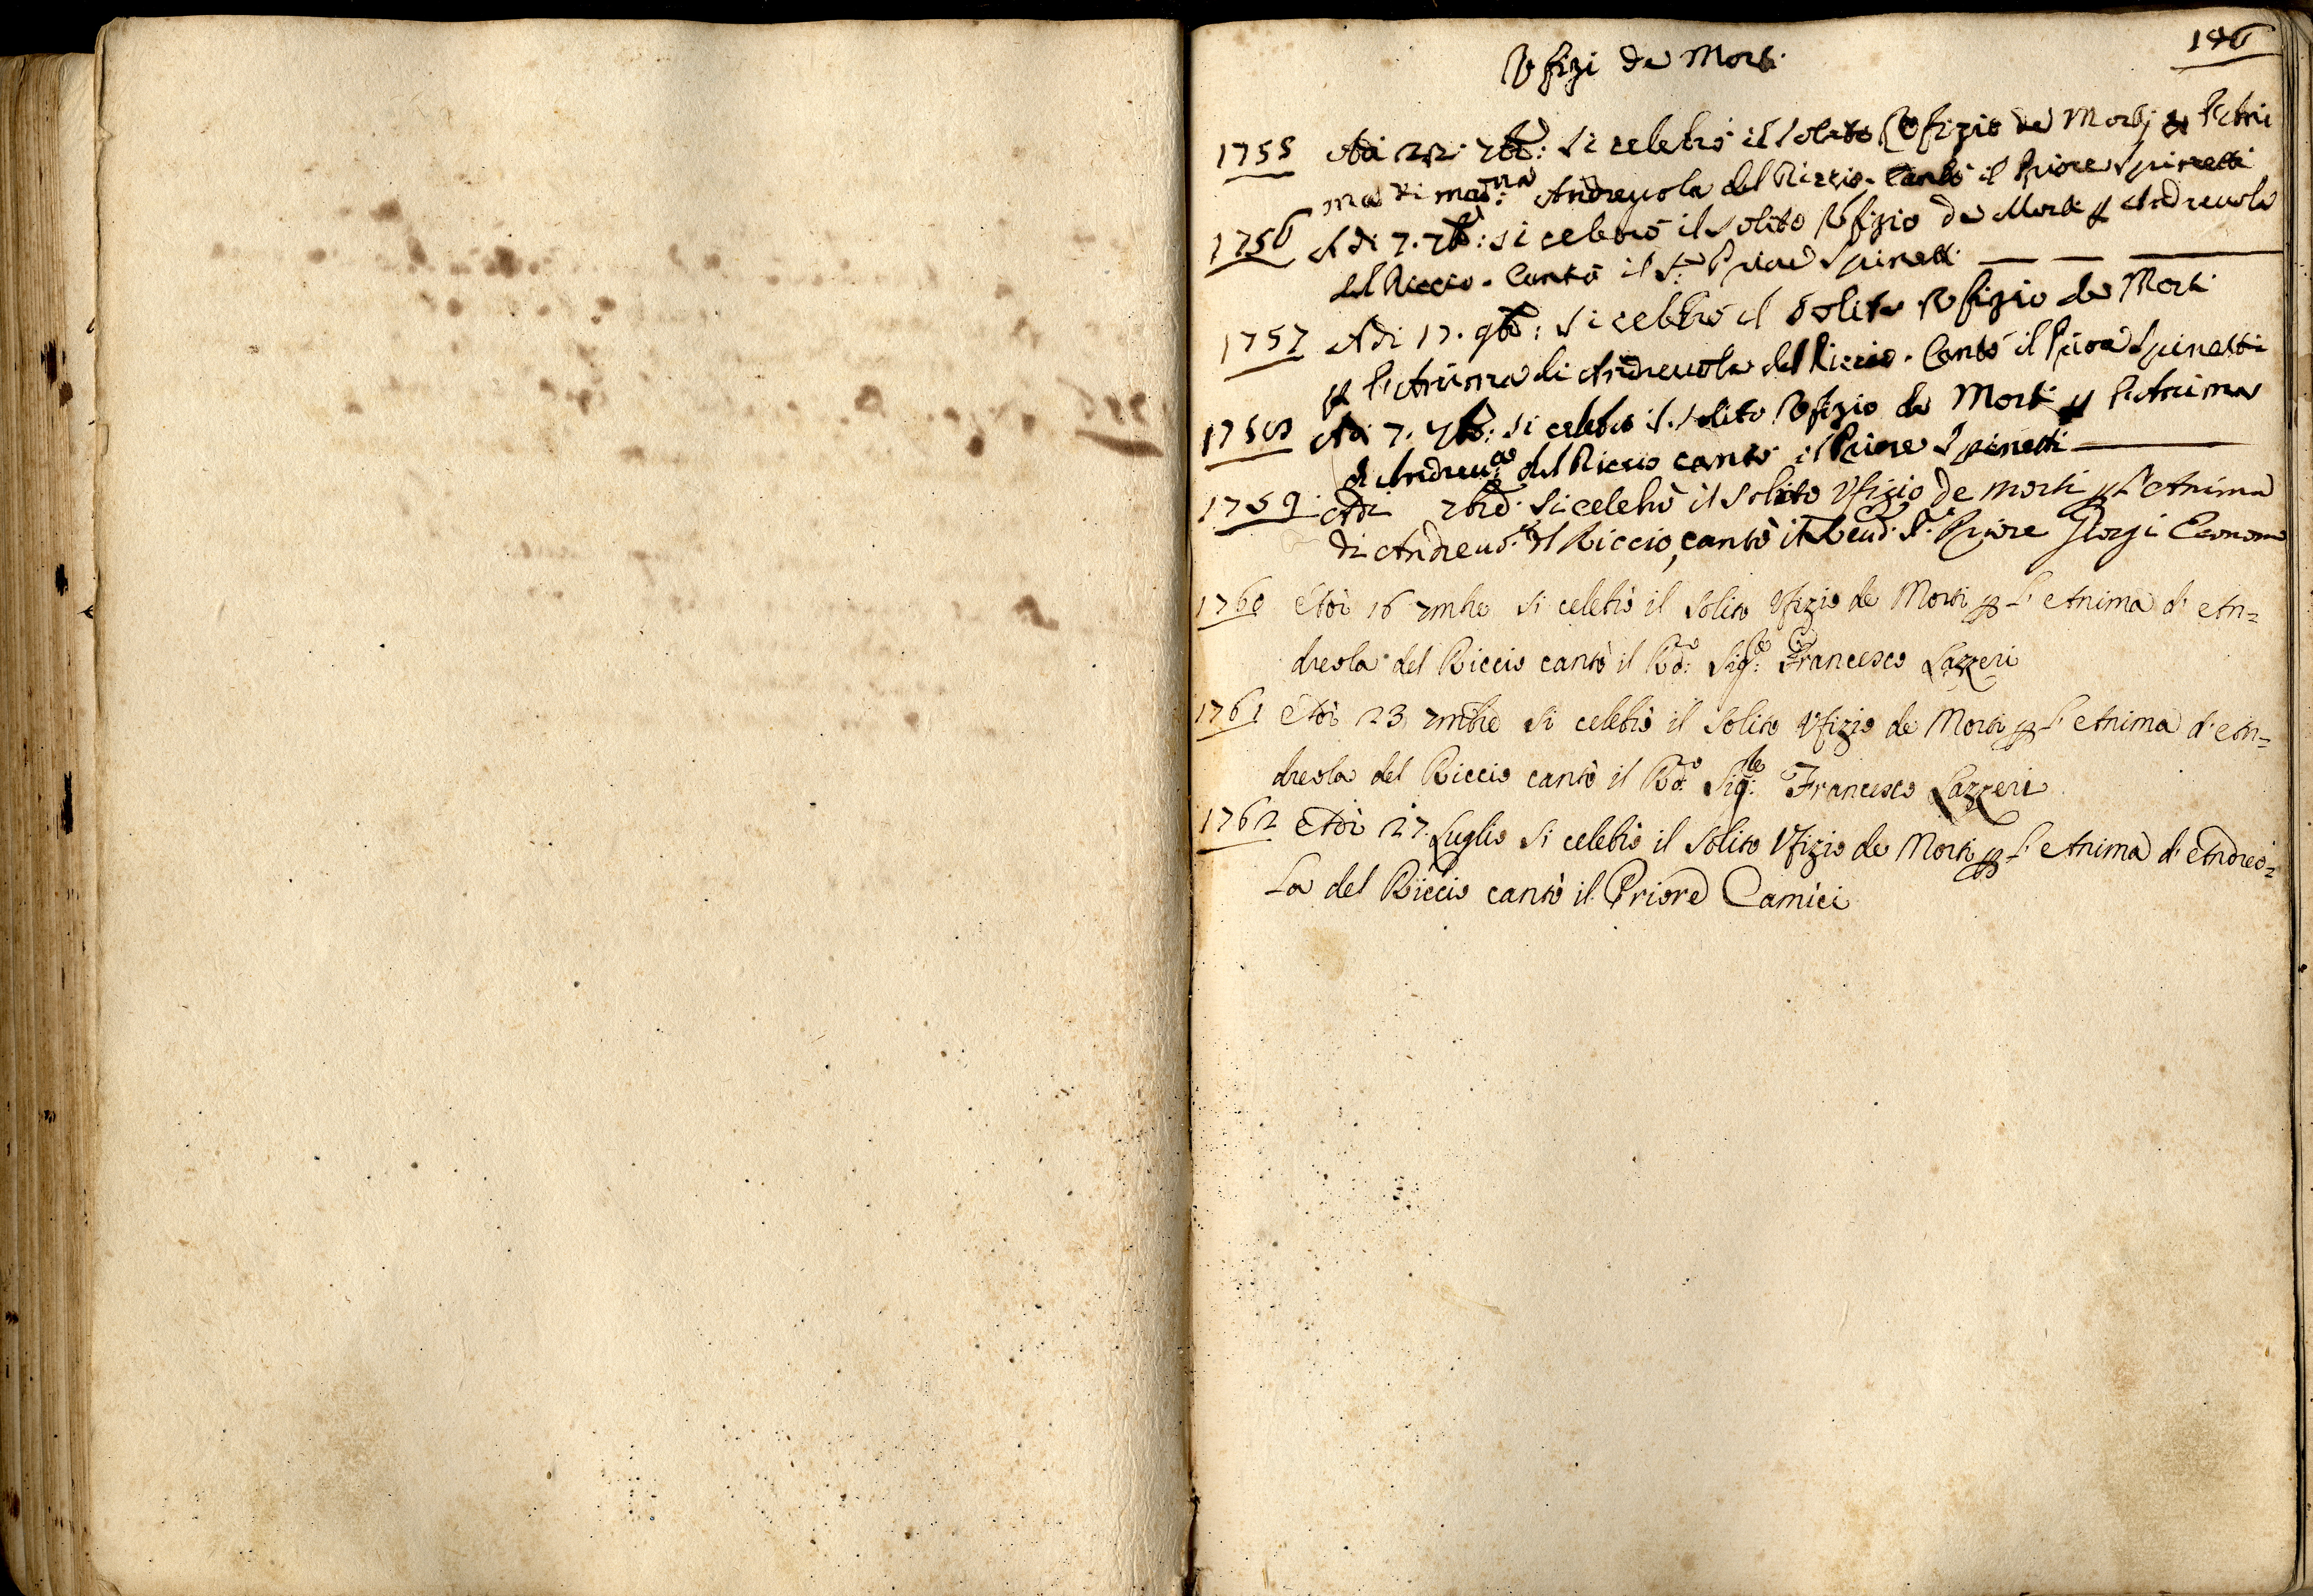 Vfizi de Morti
196
1755 Adi 22. 7bre: si celebrò il solito Vfizio de Morti p l'Ani
ma di mad:na Andreuola del Riccio. Cantò il Priore Spinetti
1756 Adi 7. 7bre: si celebrò il solito Vfizio de Morti p Andreuola
del Riccio. Cantò il S.r Priore Spinetti
1757 Adi 17. 9bre: si celebrò il solito Vfizio de Morti
p l'Anima di Andreuola del Riccio. Cantò il Priore Spinetti
1758 Adi 7. 7bre: si celebrò il solito Vfizio de Morti p l'Anima
di Andreu:a del Riccio cantò il Priore Spinetti
1759. Adi 7bre. si celebrò il solito Vfizio de morti p l'Anima
di Andreuo:la del Riccio, cantò il Reud. S.r Priore Giorgi Economo
1760 Adi 16 7mbre si celebrò il solito Vfizio de Morti p l'Anima d' An=
dreola del Riccio cantò il Rdo: Sig:re Francesco Lazzeri
1761 Adi 23 7mbre si celebrò il solito Vfizio de Morti p l'Anima d' An=
dreola del Riccio cantò il Rdo: Sig:re Francesco Lazzeri
1762 Adi 27. Luglio si celebrò il solito Vfizio de Morti p l'Anima d' Andreo=
la del Riccio cantò il Priore Camici